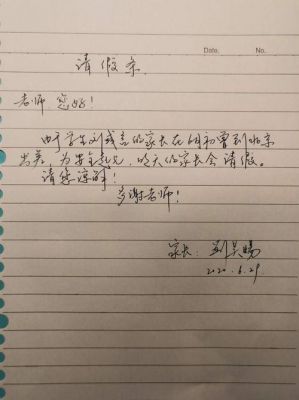 请假条
Date. No.
老师 您好!
由于学生刘或言的家长在月初曾到北京
出差,为安全起见,明天的家长会请假。
请您谅解!
多谢老师!
家长:刘昊旸
2020.6.29